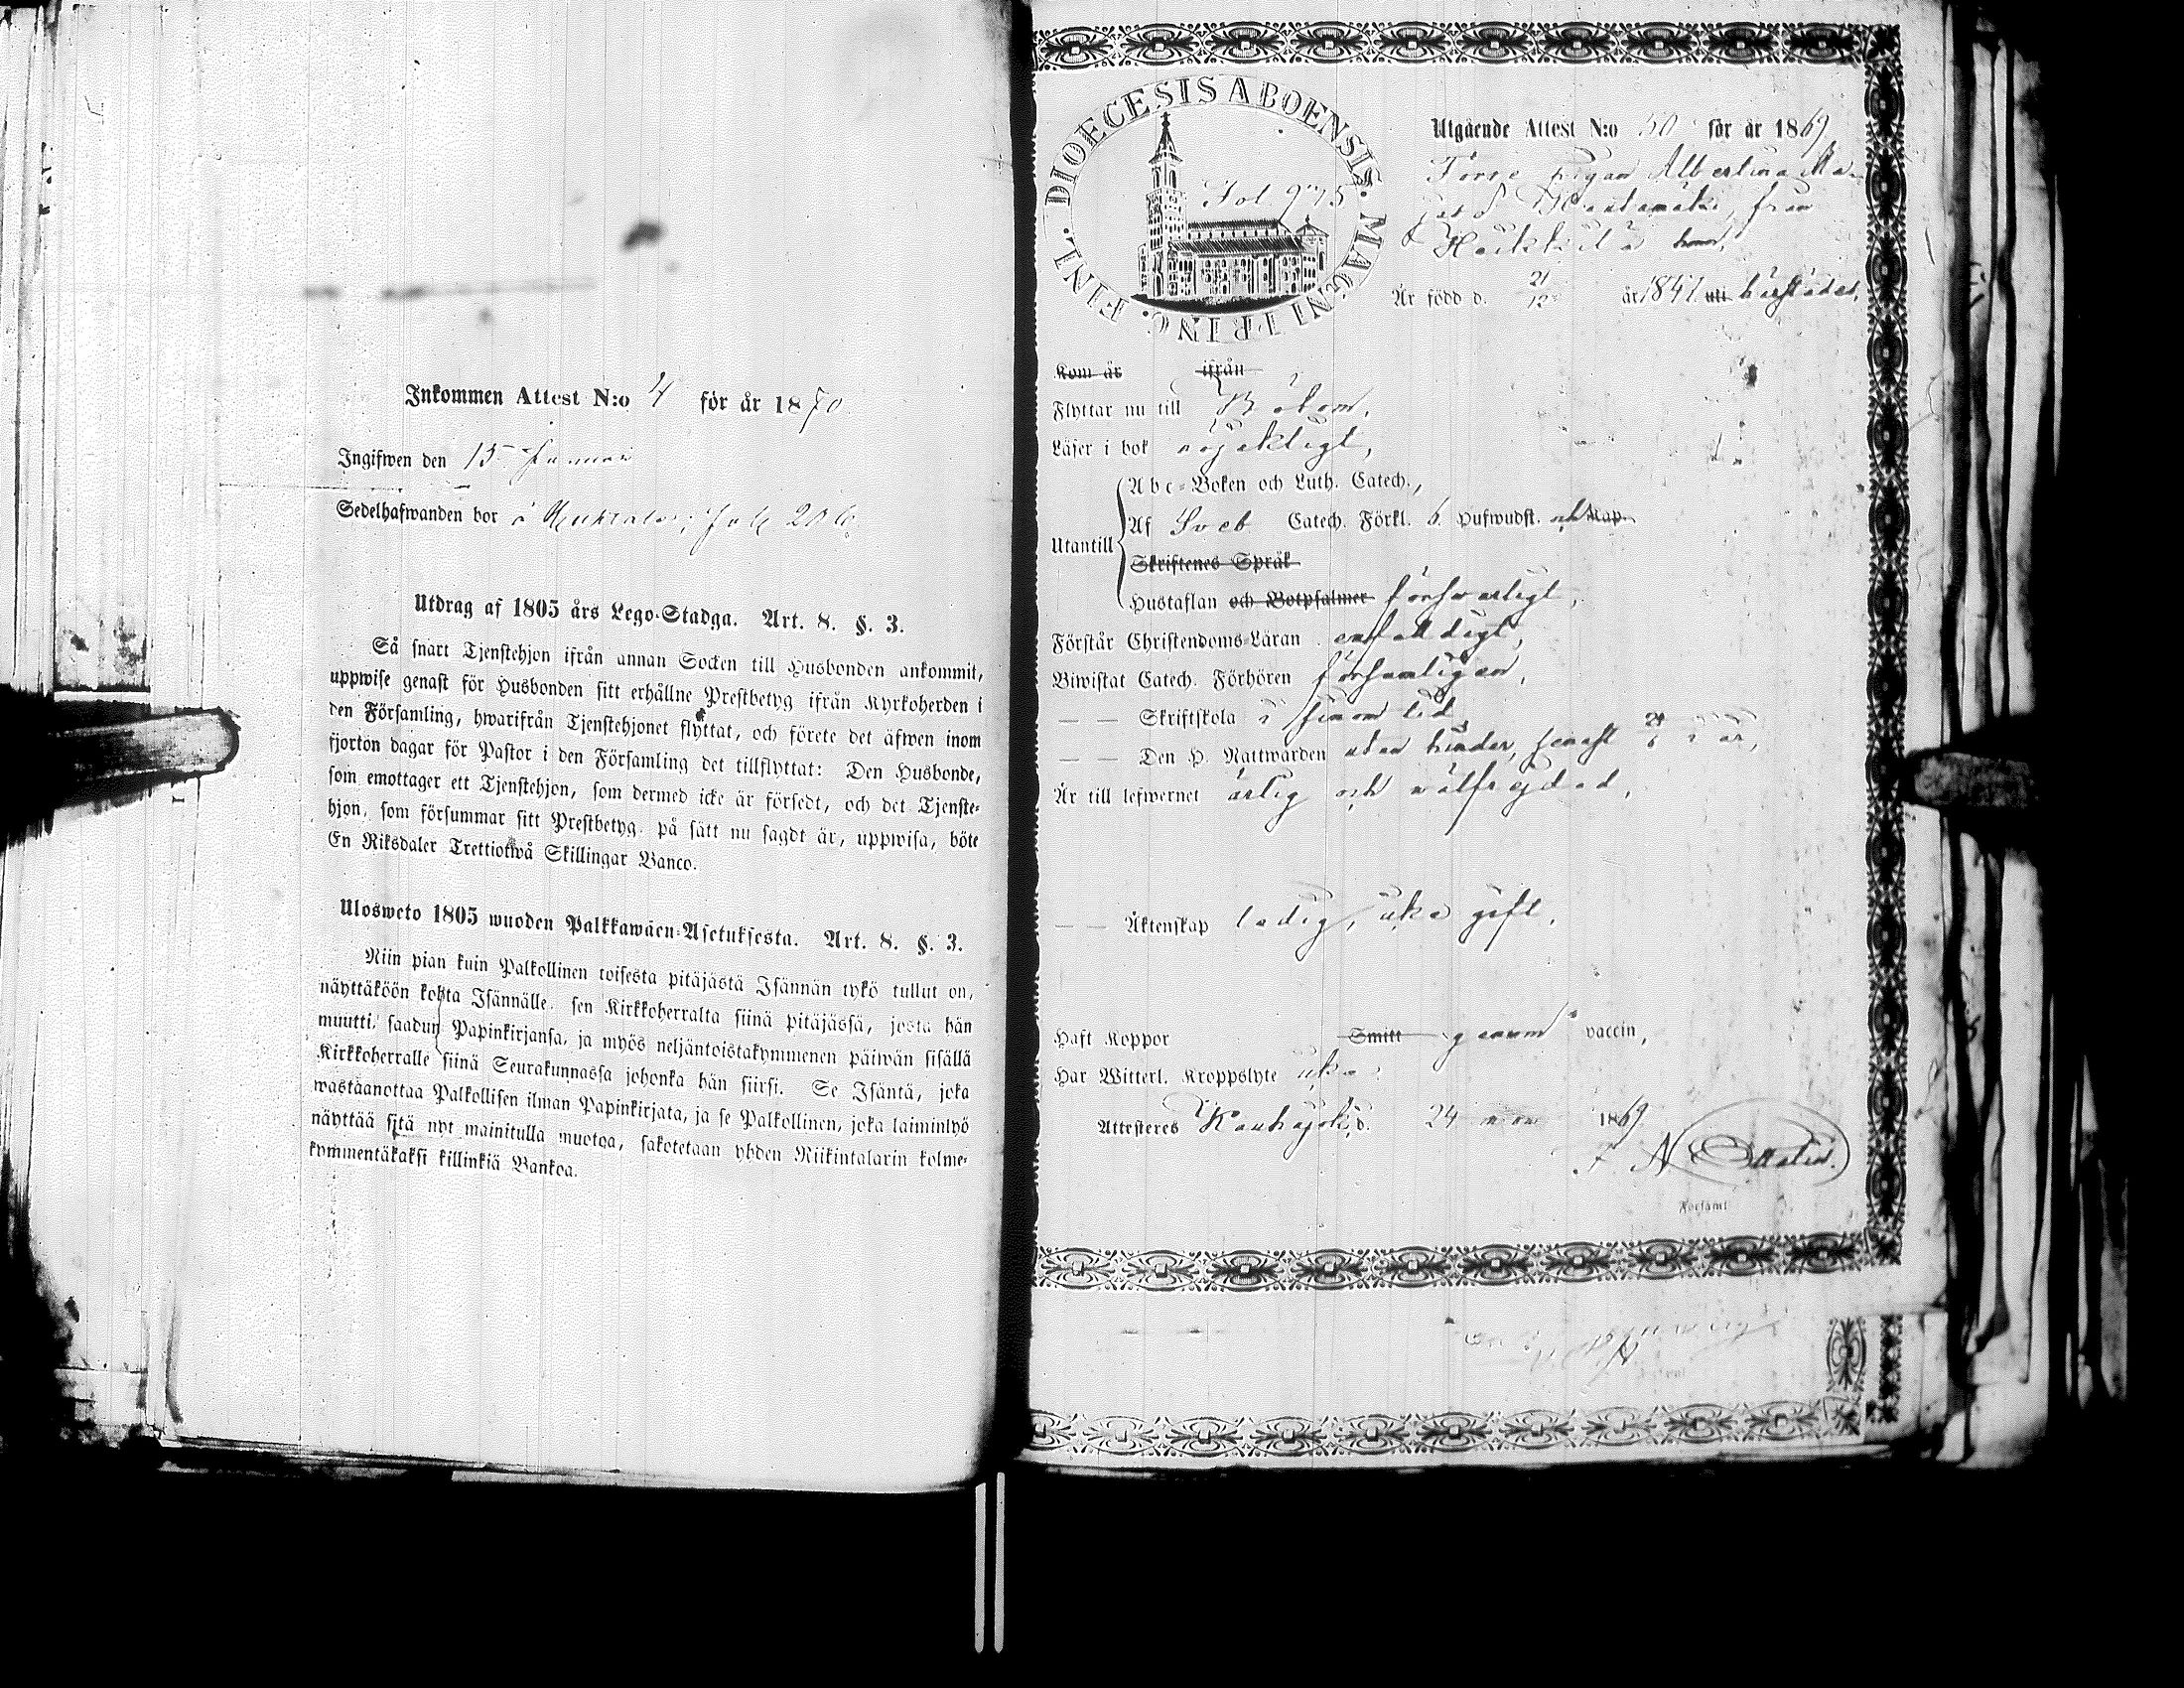 Inkommen Attest N:o 4 för år 1870
Ingifwen den 15 Januari
Sedelhafwanden bor å
Utdrag af 1805 års Lego-Stadga. Art. 8. §. 3.
Så snart Tjenstehjon ifrån annan Socken till Husbonden ankommit,
uppwise genast för Husbonden sitt erhållne Prestbetyg ifrån Kyrkoherden i
den Församling, hwarifrån Tjenstehjonet flyttat, och förete det äfwen inom
fjorton dagar för Pastor i den Församling det tillflyttat: Den Husbonde,
som emottager ett Tjenstehjon, som dermed icke är försedt, och det Tjenste-
hjon, som försummar sitt Prestbetyg på sätt nu sagdt är, uppwisa, böte
En Riksdaler Trettiotwå Skillingar Banco.
Ulosweto 1805 wuoden Palkkawäen-Asetuksesta. Art. 8. §. 3.
Niin pian kuin Palkollinen toisesta pitäjästä Isännän tykö tullut on,
näyttäköön kohta Isännälle sen Kirkkoherralta siinä pitäjässä, josta hän
muutti, saadun Papinkirjansa, ja myös neljäntoistakymmenen päiwän sisällä
Kirkkoherralle siinä Seurakunnassa johonka hän siirsi. Se Isäntä, joka
wastaanottaa Palkollisen ilman Papinkirjata, ja se Palkollinen, joka laiminlyö
näyttää sitä nyt mainitulla muotoa, sakotetaan yhden Riikintalarin kolme-
kymmentäkaksi killinkiä Bankoa.
DIOECESIS ABOENSIS. MAGNI PRINC. FINL.
Fol. 975
Utgående Attest N:o 50 för år 1869
Törre Pigan Albertina Ma-
från
Är född d. 21/12 år 1847 uti härstädes,
Kom år ifrån
Flyttar nu till Bötom,
Läser i bok nöjaktigt,
Abc-Boken och Luth. Catech.,
Utantill Af Sveb. Catech. Förkl. 6 Hufwudst. och Kap.
Skriftenes Språk
Hustaflan och Botpsalmer försvarligt,
Förstår Christendoms-Läran enfaldigt,
Biwistat Catech. Förhören församligen,
— — Skriftskola i sinom tid,
— — Den H. Nattwarden utan hinder, senast 24/6 i år,
Är till lefwernet ärlig och wälfrejdad,
— — Äktenskap ledig, icke gift,
Haft Koppor Smitt genom vaccin,
Har Witterl. Kroppslyte icke.
Attesteras Kauhajoki, d. 24 1869
Församl